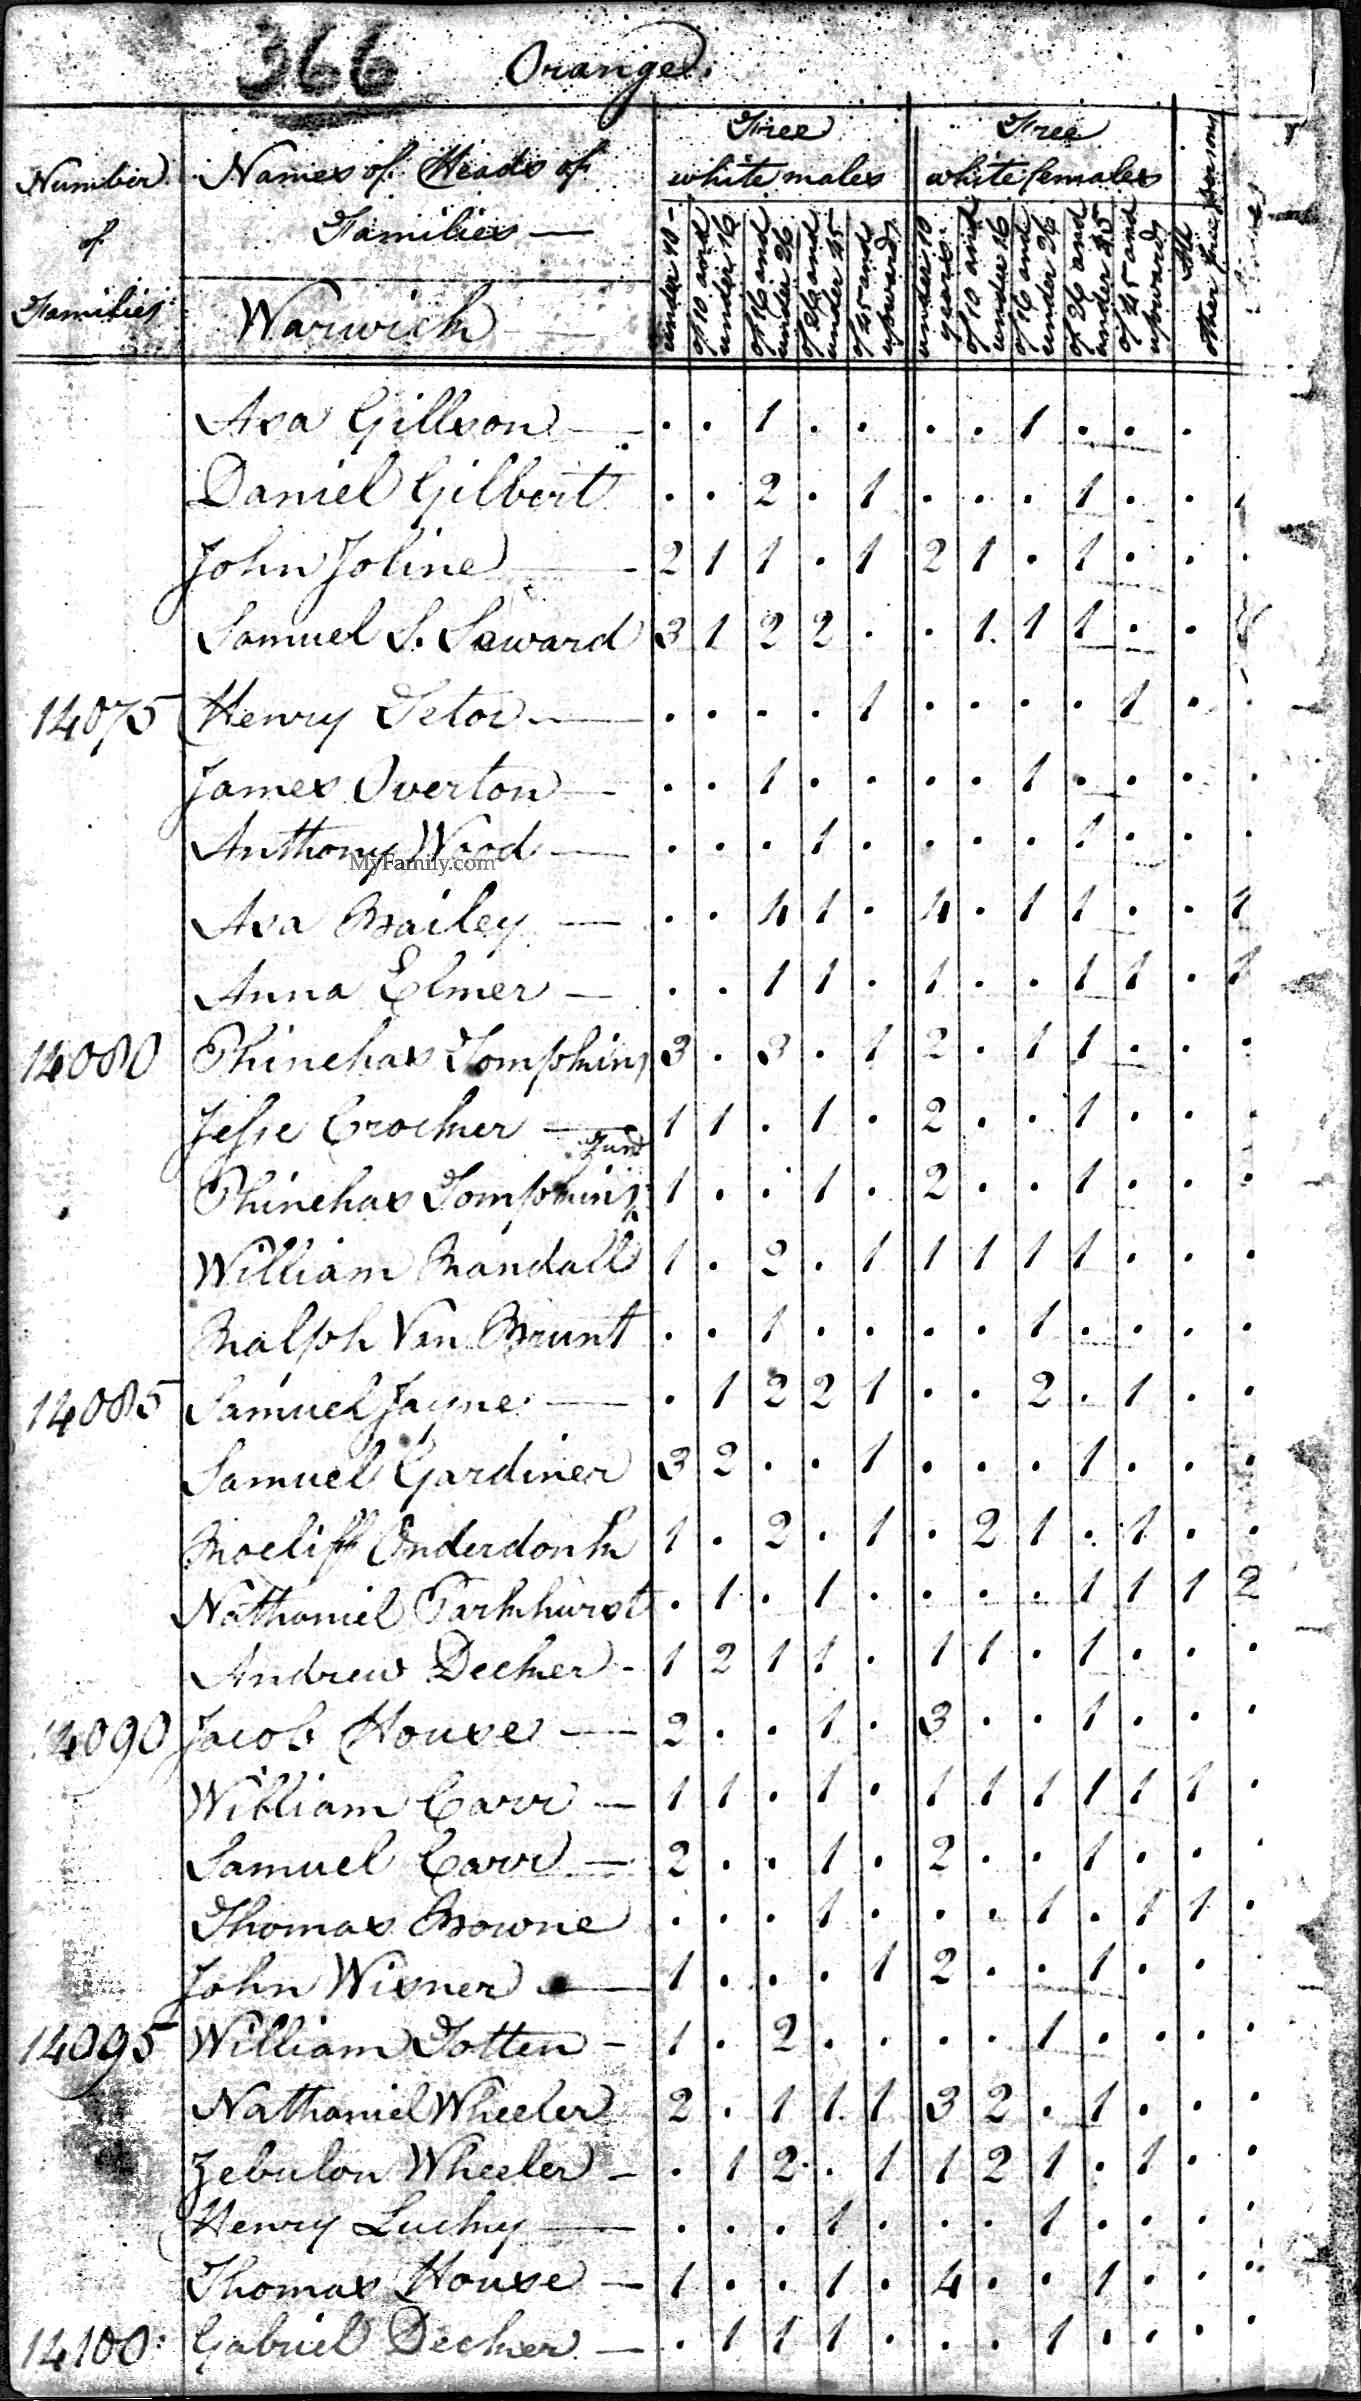 366 Orange.
Number of Families
Names of Heads of Families —
Free white males
Free white females
under 10
of 10 and under 16
of 16 and under 26
of 26 and under 45
of 45 and upwards
under 10 years
of 10 and under 16
of 16 and under 26
of 26 and under 45
of 45 and upwards
All other free persons
Warwick
Asa Gillson — . . 1 . . . . 1 . . .
Daniel Gilbert . . 2 . 1 . . . 1 . .
John Joline — 2 1 1 . 1 2 1 . 1 . . .
Samuel S. Saward 3 1 2 2 . . 1 1 1 . .
14075 Henry Tetor — . . . . 1 . . . . 1 . .
James Overton — . . 1 . . . . 1 . . . .
Anthony Wood — . . . 1 . . . . 1 . . .
MyFamily.com
Asa Bailey — . . 4 1 . 4 . 1 1 . . 1
Anna Elmer — . . 1 1 . 1 . . 1 1 . 1
14080 Phinehas Tompkins 3 . 3 . 1 2 . 1 1 . . .
Jesse Crocker — 1 1 . 1 . 2 . . 1 . . .
Phinehas Tompkins Junr 1 . . 1 . 2 . . 1 . . .
William Randall 1 . 2 . 1 1 1 1 1 . . .
Ralph Van Brunt . . 1 . . . . 1 . . . .
14085 Samuel Jayne — . 1 2 2 1 . . 2 . 1 . .
Samuel Gardiner 3 2 . . 1 . . . 1 . . .
Roeliff Onderdonk 1 . 2 . 1 . 2 1 . 1 . .
Nathaniel Parkhurst . 1 . 1 . . . . 1 1 1 2
Andrew Decker - 1 2 1 1 . 1 1 . 1 . . .
14090 Jacob House — 2 . . 1 . 3 . . 1 . . .
William Carr — 1 1 . 1 . 1 1 1 1 1 1 .
Samuel Carr — 2 . . 1 . 2 . . 1 . . .
Thomas Browne . . . 1 . . . 1 . 1 1 .
John Wisner — 1 . . . 1 2 . . 1 . . .
14095 William Totten - 1 . 2 . . . . 1 . . . .
Nathaniel Wheeler 2 . 1 1 1 3 2 . 1 . . .
Zebulon Wheeler - . 1 2 . 1 1 2 1 . 1 . .
Henry Luckey — . . . 1 . . . 1 . . . .
Thomas House — 1 . . 1 . 4 . . 1 . . .
14100 Gabriel Decker — . 1 1 1 . . . 1 . . . .